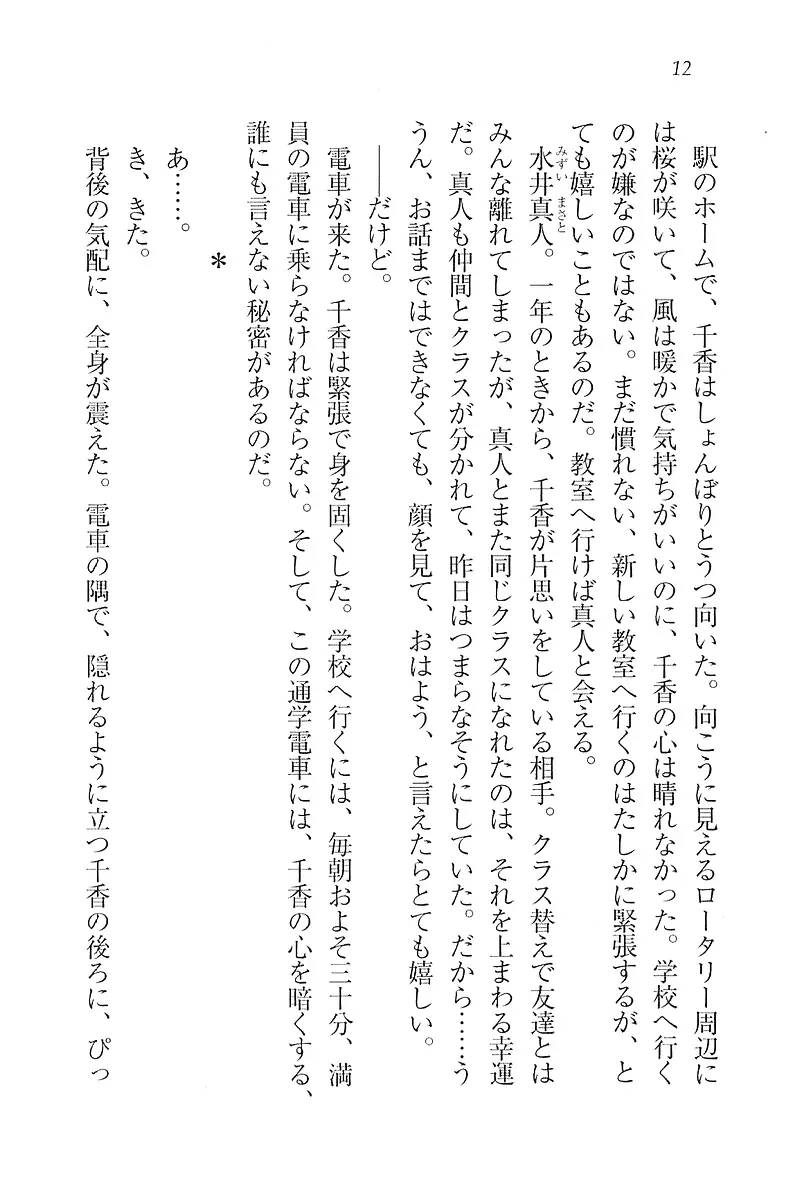 12
駅のホームで、千香はしょんぼりとうつ向いた。向こうに見えるロータリー周辺に
は桜が咲いて、風は暖かで気持ちがいいのに、千香の心は晴れなかった。学校へ行く
のが嫌なのではない。まだ慣れない、新しい教室へ行くのはたしかに緊張するが、と
ても嬉しいこともあるのだ。教室へ行けば真人と会える。
水井真人。一年のときから、千香が片思いをしている相手。クラス替えで友達とは
みずい まさと
みんな離れてしまったが、真人とまた同じクラスになれたのは、それを上まわる幸運
だ。真人も仲間とクラスが分かれて、昨日はつまらなそうにしていた。だから……う
うん、お話まではできなくても、顔を見て、おはよう、と言えたらとても嬉しい。
――だけど。
電車が来た。千香は緊張で身を固くした。学校へ行くには、毎朝およそ三十分、満
員の電車に乗らなければならない。そして、この通学電車には、千香の心を暗くする、
誰にも言えない秘密があるのだ。
*
あ……。
き、きた。
背後の気配に、全身が震えた。電車の隅で、隠れるように立つ千香の後ろに、ぴっ